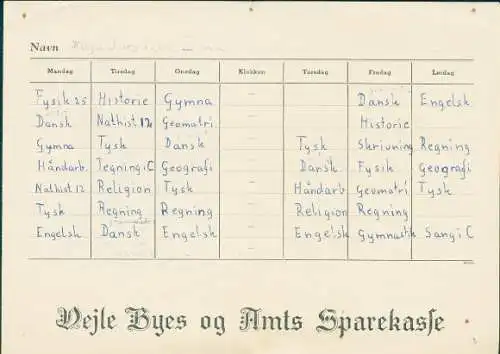 Navn
Mandag Tirsdag Onsdag Klokken Torsdag Fredag Lørdag
Fysik 25 Historie Gymna — Dansk Engelsk
Dansk Nathist 12 Geometri — Historie
Gymna Tysk Dansk — Tysk Skrivning Regning
Håndarb. Tegning.C Geografi — Dansk Fysik Geografi
Nathist 12 Religion Tysk — Håndarb Geometri Tysk
Tysk Regning Regning — Religion Regning
Engelsk Dansk Engelsk — Engelsk Gymnastik Sang i C
Vejle Byes og Amts Sparekasse